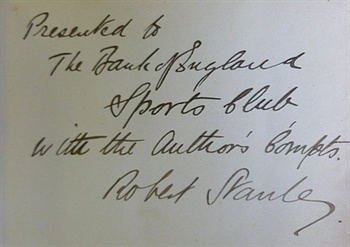 Presented to
The Bank of England
Sports Club
with the Author's Compts.
Robert Stanley